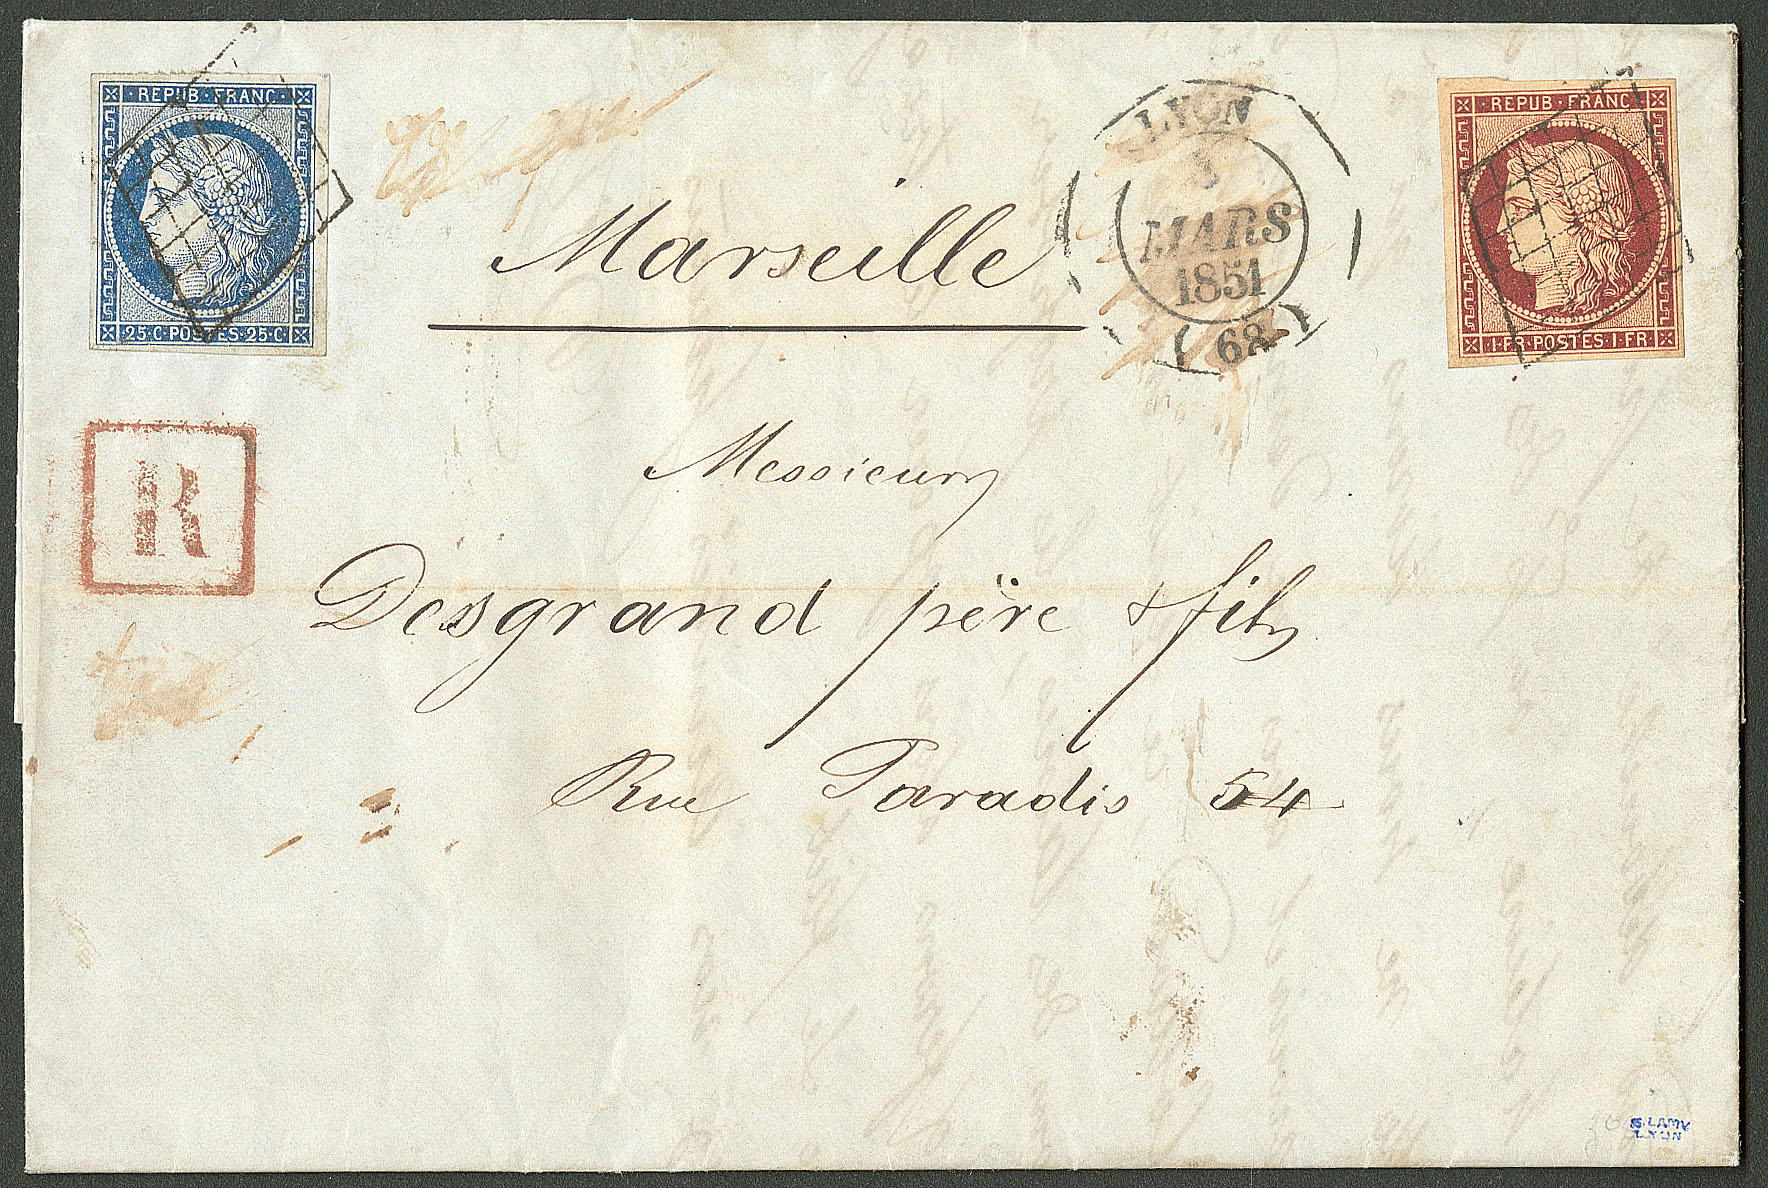 REPUB · FRANC ·
25·C·POSTES·25·C
LYON
MARS
1851
(68)
REPUB · FRANC ·
·1·FR·POSTES·1·FR·
Marseille
R
Messieurs
Desgrand père & fils
Rue Paradis 54
LAMY
LYON